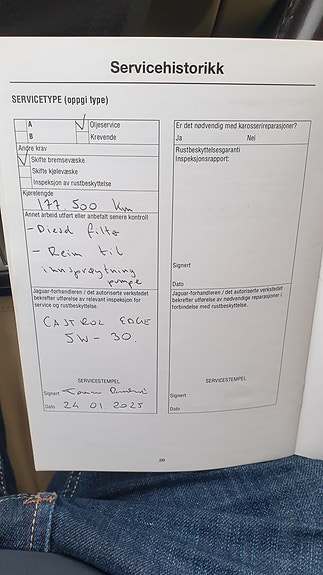 Servicehistorikk
SERVICETYPE (oppgi type)
A
Oljeservice
B
Krevende
Andre krav
Skifte bremsevæske
Skifte kjølevæske
Inspeksjon av rustbeskyttelse
Kjørelengde
177 500 km
Annet arbeid utført eller anbefalt senere kontroll
- Diesel filter
- Reim til
innsprøytning
pumpe
Jaguar-forhandleren / det autoriserte verkstedet
bekrefter utførelse av relevant inspeksjon for
service og rustbeskyttelse.
CASTROL EDGE
5W-30.
SERVICESTEMPEL
Signert
Dato 24.01.2025
Er det nødvendig med karosserireparasjoner?
Ja Nei
Rustbeskyttelsesgaranti
Inspeksjonsrapport:
Signert
Dato
Jaguar-forhandleren / det autoriserte verkstedet
bekrefter utførelse av nødvendige reparasjoner i
forbindelse med rustbeskyttelse.
SERVICESTEMPEL
Signert
Dato